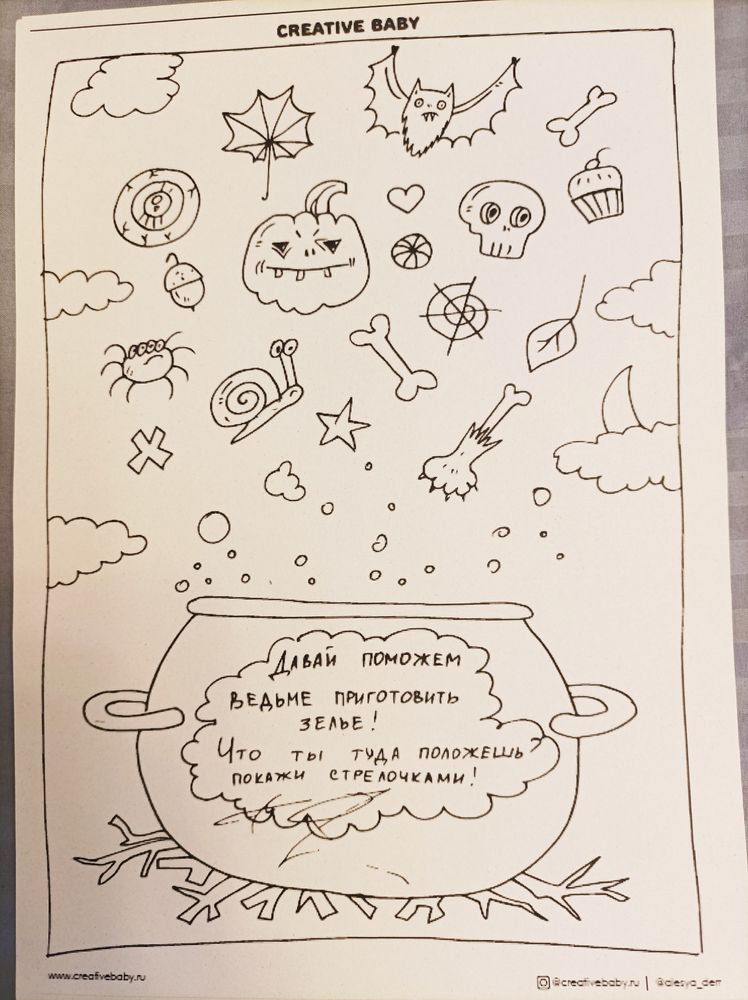 CREATIVE BABY
ДАВАЙ ПОМОЖЕМ
ВЕДЬМЕ ПРИГОТОВИТЬ
ЗЕЛЬЕ!
ЧТО ТЫ ТУДА ПОЛОЖЕШЬ
ПОКАЖИ СТРЕЛОЧКАМИ!
www.creativebaby.ru
@creativebaby.ru | @alesya_derr